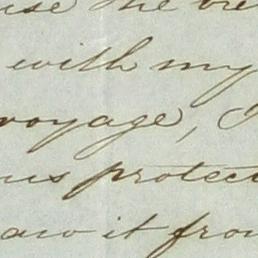 use the
with my
voyage, I
us protect
aw it from